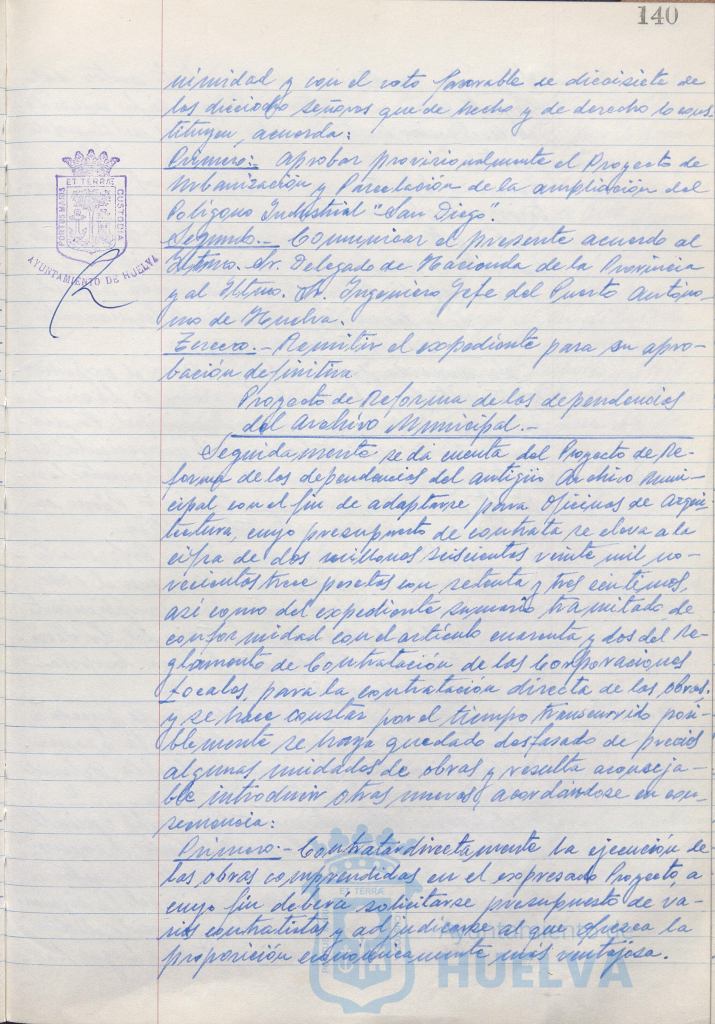 140
nimidad y con el voto favorable de diecisiete de
los dieciocho señores que de hecho y de derecho lo cons
tituyen, acuerda:
Primero:- Aprobar provisionalmente el Proyecto de
Urbanización y Parcelación de la ampliación del
Polígono Industrial "San Diego".
Segundo.- Comunicar el presente acuerdo al
Iltmo. Sr. Delegado de Hacienda de la Provincia
y al Iltmo. Sr. Ingeniero Jefe del Puerto Autóno-
mo de Huelva.
Tercero.- Remitir el expediente para su apro-
bación definitiva
Proyecto de Reforma de las dependencias
del Archivo Municipal.-
Seguidamente se dá cuenta del Proyecto de Re-
forma de las dependencias del antigüo Archivo Muni-
cipal con el fin de adaptarse para Oficinas de Arqui-
tectura, cuyo presupuesto de contrata se eleva a la
cifra de dos millones seiscientas veinte mil no-
vecientas trece pesetas con setenta y tres céntimos,
así como del expediente sumario tramitado de
conformidad con el artículo cuarenta y dos del Re-
glamento de Contratación de las Corporaciones
Locales, para la contratación directa de las obras.
y se hace constar por el tiempo transcurrido posi-
blemente se haya quedado desfasado de precios
algunas unidades de obras y resulta aconseja-
ble introducir otras nuevas, acordándose en con-
secuencia:
Primero:- Contratar directamente la ejecución de
las obras comprendidas en el expresado Proyecto, a
cuyo fin deberá solicitarse presupuesto de va-
rios contratistas y adjudicarse al que ofrezca la
proposición económicamente más ventajosa.
PORTUS MARIS ET TERRÆ CUSTODIA
AYUNTAMIENTO DE HUELVA
ET TERRÆ
Ayuntamiento de
HUELVA